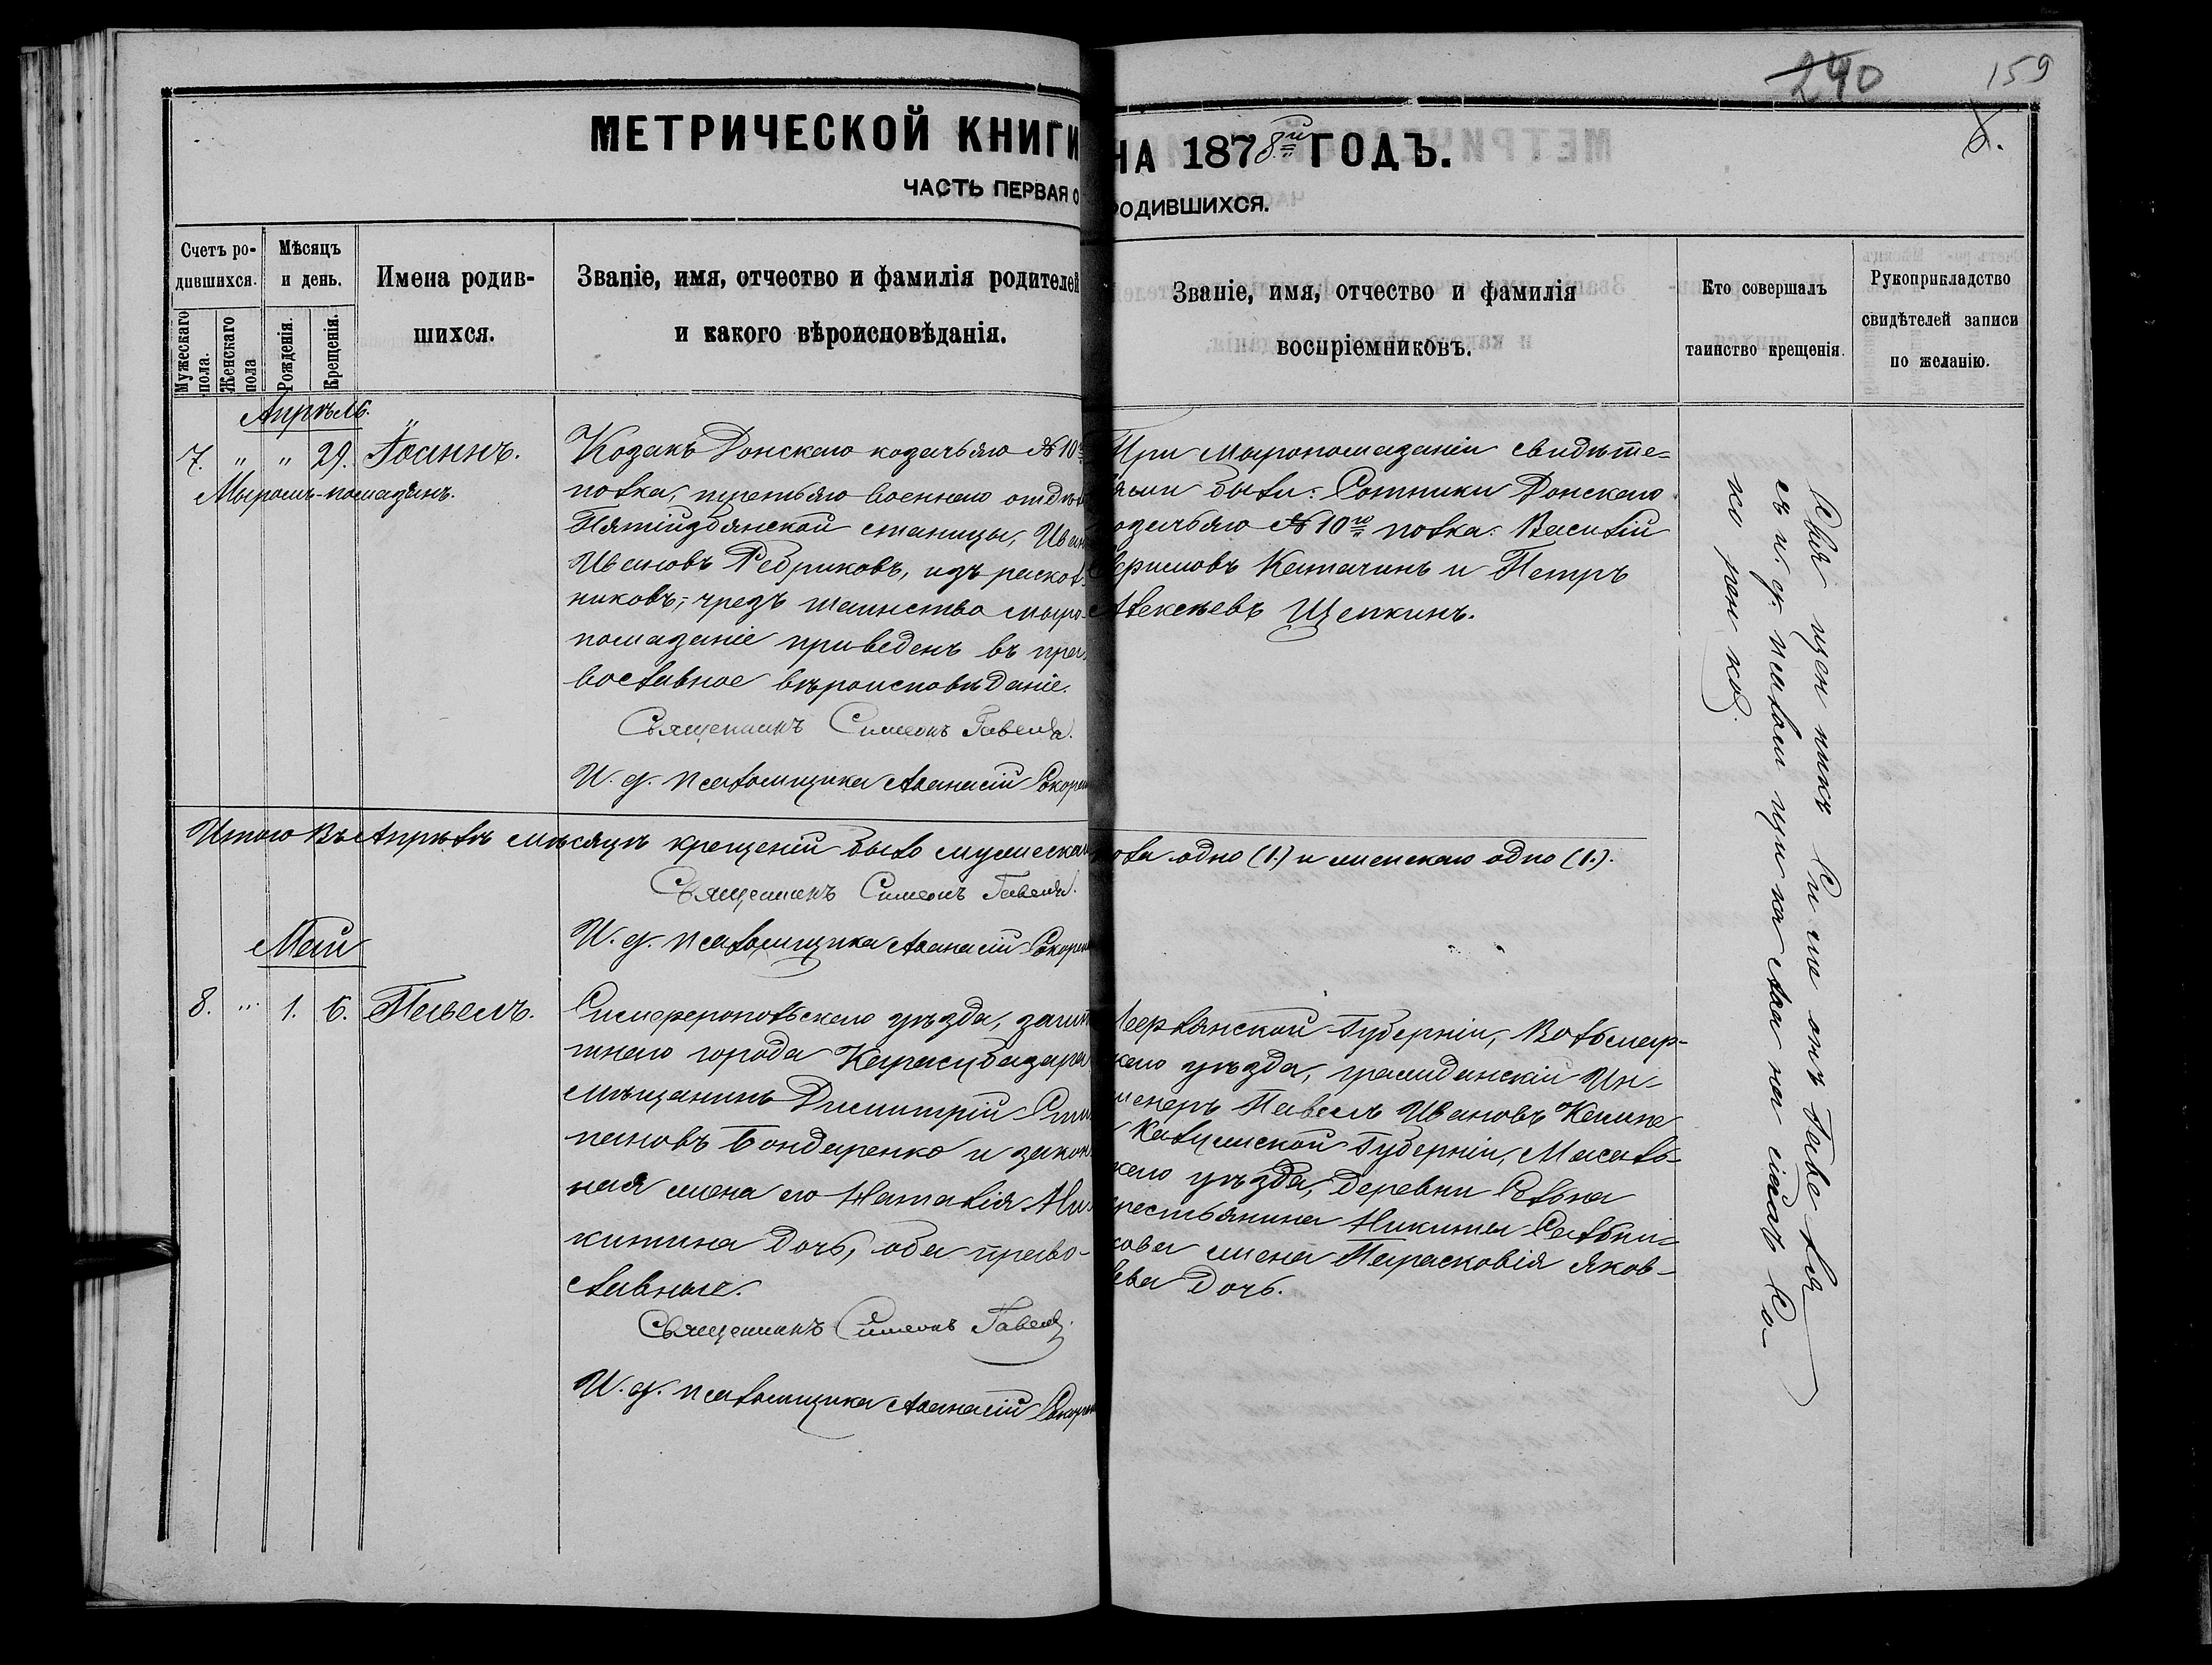 240 159
8.
МЕТРИЧЕСКОЙ КНИГИ НА 1878й ГОДЪ.
ЧАСТЬ ПЕРВАЯ О РОДИВШИХСЯ.
Счетъ ро-
дившихся.
Мужескаго пола.
Женскаго пола
Мѣсяцъ
и день.
Рожденія.
Крещенія.
Имена родив-
шихся.
Званіе, имя, отчество и фамилія родителей
и какого вѣроисповѣданія.
Званіе, имя, отчество и фамилія
воспріемниковъ.
Кто совершалъ
таинство крещенія.
Рукоприкладство
свидѣтелей записи
по желанію.
Апрѣль.
7. " " 29. Іоаннъ.
Мѵромъ-помазанъ.
Козакъ Донскаго козачьяго №10го
полка, третьяго военнаго отдѣл
Пятиизбянской станицы, Иван
Ивановъ Ребриковъ, изъ раскол-
никовъ, чрезъ таинство мѵро-
помазаніе приведенъ въ пра-
вославное вѣроисповѣданіе.
Священникъ Симеонъ Гавеля.
И. д. псаломщика Аѳанасій Сокорен
При мѵропомазаніи свидѣте-
лями были: Сотники Донскаго
козачьяго №10го полка: Василій
Качалинъ и Петръ
Алексѣевъ Щепкинъ.
Итого въ Апрѣлѣ мѣсяцѣ крещеній было мужескаго пола одно (1.) и женскаго одно (1.).
Священникъ Симеонъ Гавеля.
И. д. псаломщика Аѳанасій Сокорен
Май
8. " 1. 6. Павелъ.
Симферопольскаго уѣзда, зашта
тнаго города Карасубазара
мѣщанинъ Димитрій Сти
пановъ Бондаренко и закон
ная жена его Наталія Ни-
китина дочь, оба право-
славные.
Священникъ Симеонъ Гавеля.
И. д. псаломщика Аѳанасій Сокорен
Лифлянской Губерніи, Вольмар-
скаго уѣзда, гражданскій Ин-
женеръ Павелъ Ивановъ
Калужской Губерніи, Мосаль-
скаго уѣзда, деревни
крестьянина Никиты
кова жена Парасковія Яков-
лева дочь.
Священникъ Симеонъ Гавеля
съ и. д. псаломщика Аѳанасіемъ Со-
коренко.